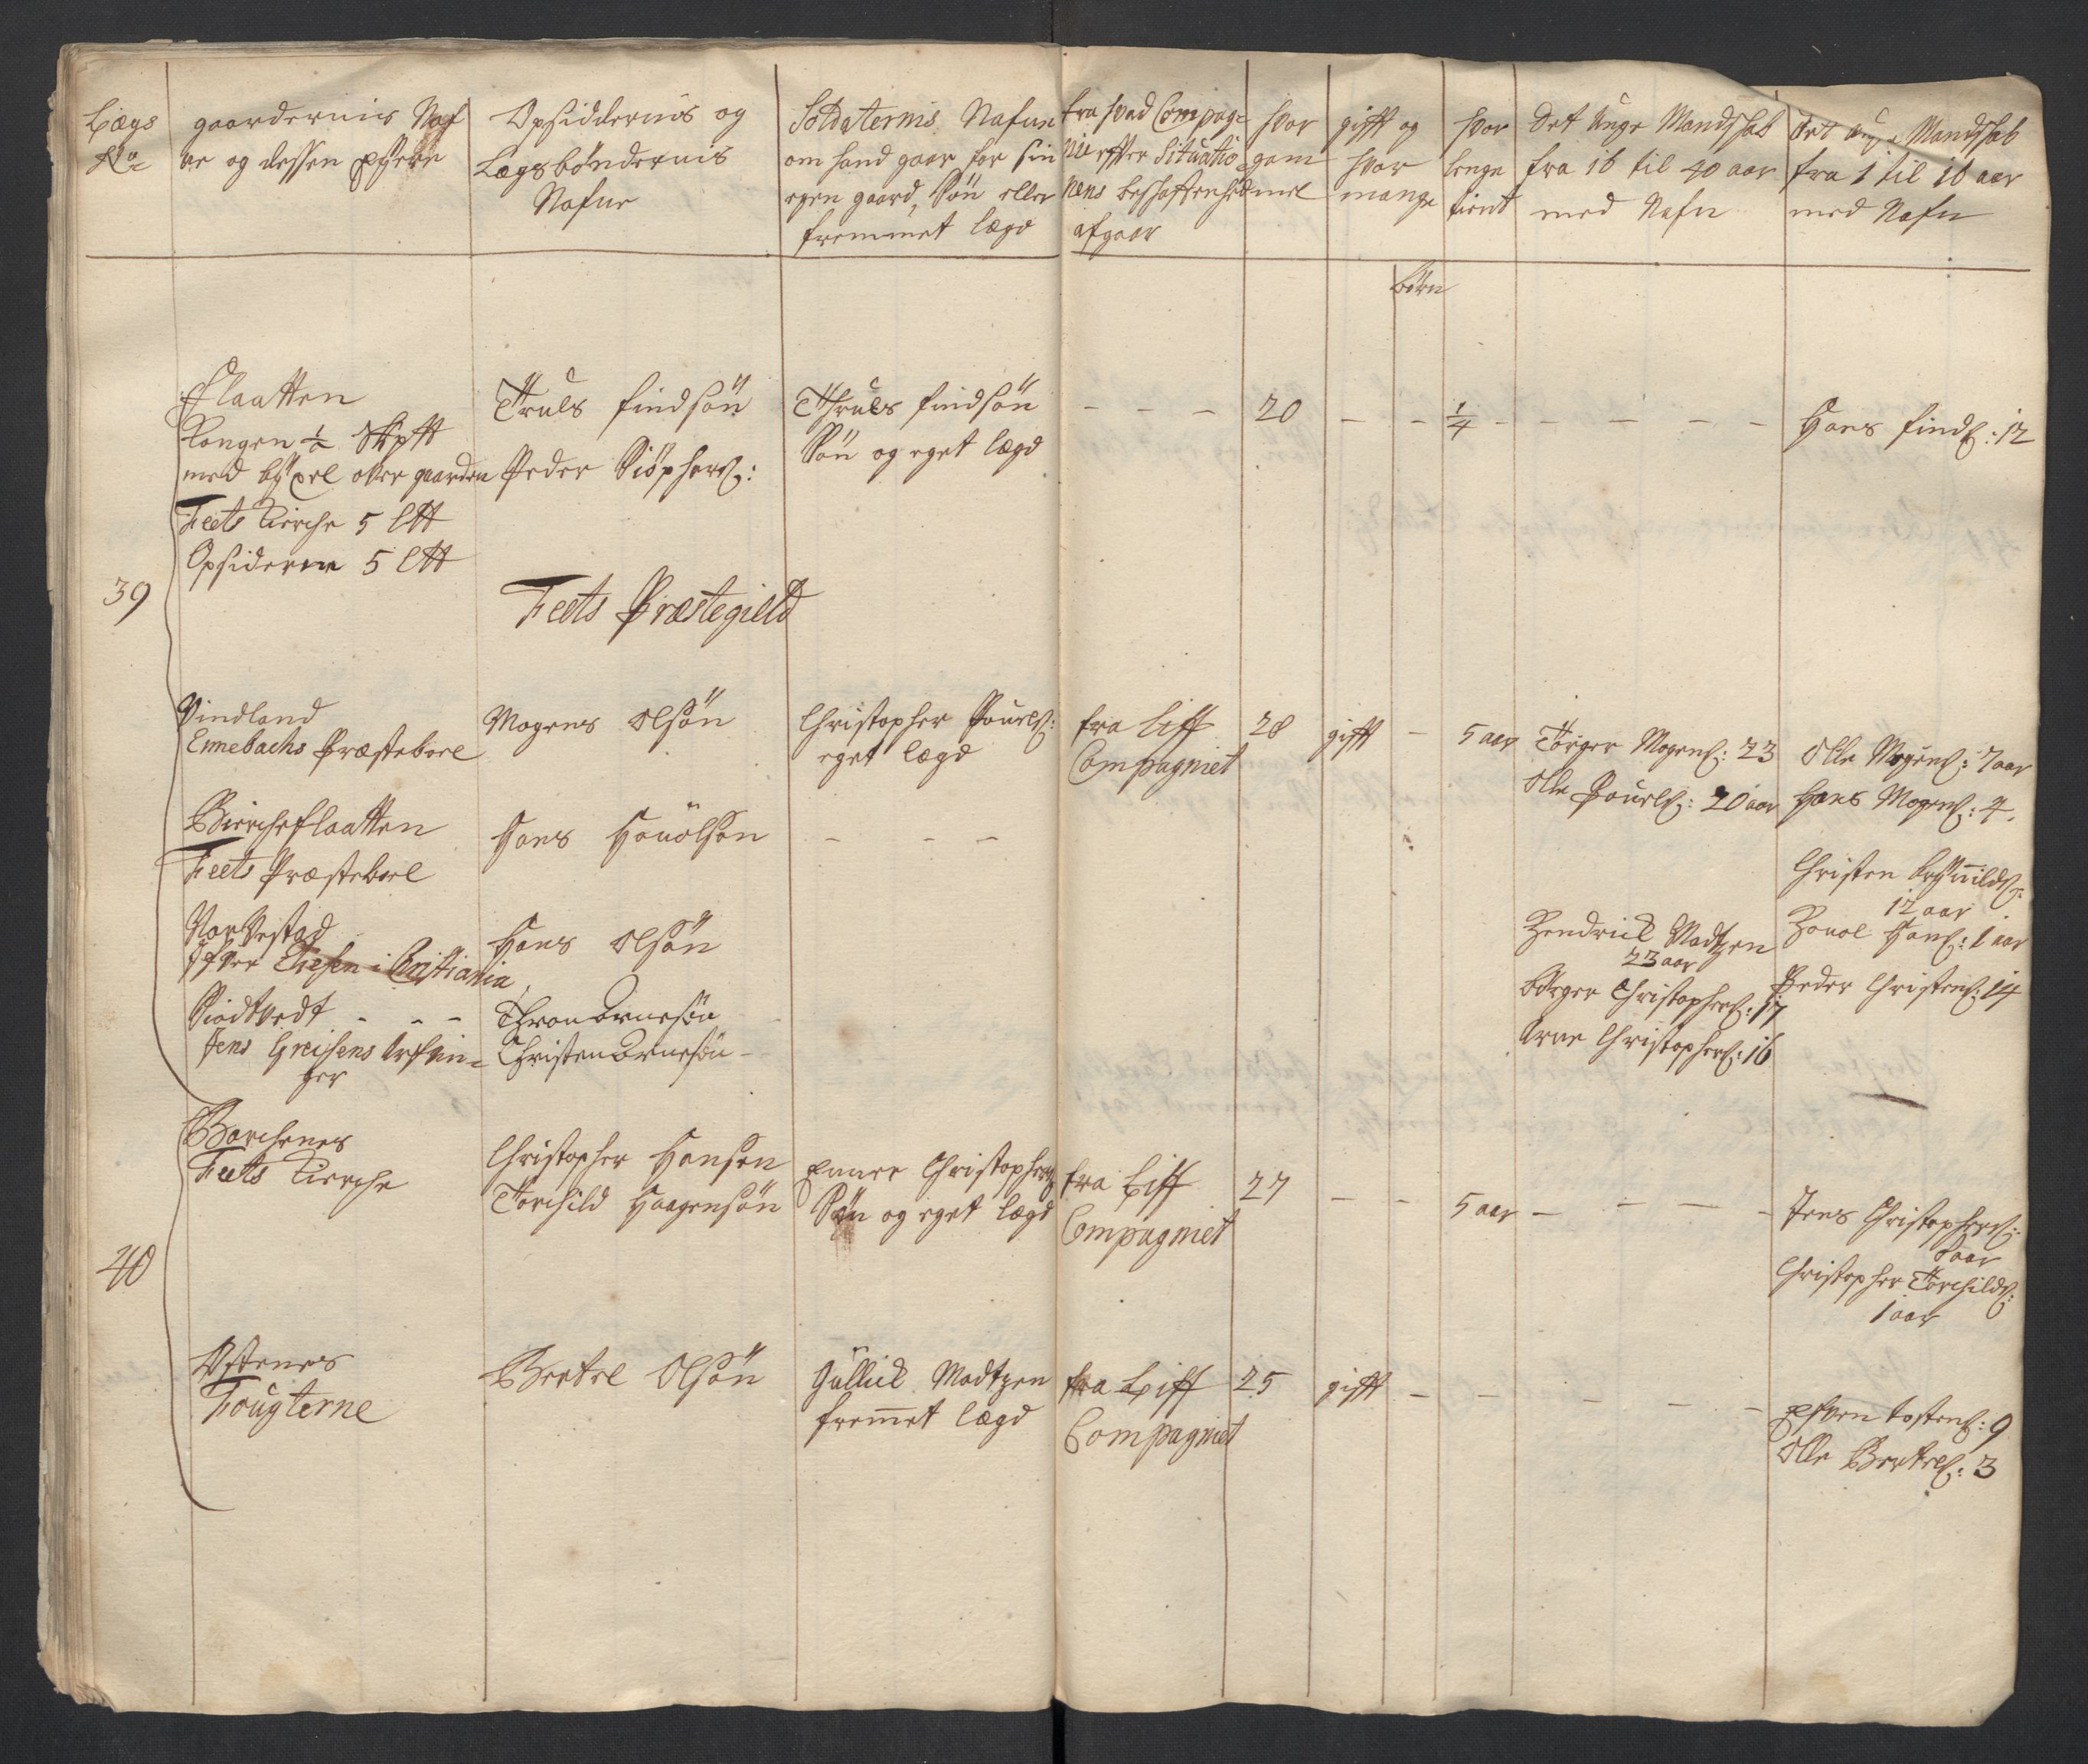 Lægs
No
gaardernis Naf
ne og dessen eÿere
Opsiddernis og
Lægsbøndernis
Nafne
Soldaternis Nafne
om hand gaar for sin
egen gaard, Søn eller
fremmet lægd
fra hvad Compag=
nie effter Situatio
nens beschaffenhed
afgaar
hvor
gam
mel
gifft og
hvor
mange
hvor
lenge
tient
Det unge Mandskab
fra 16 til 40 aar
med Nafn
Det unge Mandskab
fra 1 til 16 aar
med Nafn
børn
39
Flaatten
Kongen ½ Skptt
med bÿxel over gaarden
Feets Kirche 5 Ltt
Opsiderne 5 Ltt
Truls findsøn
Peder Siøphers:
Thruls findsøn
Søn og eget lægd
- - - 20 - - ¼ - - - - -
Hans finds: 12
Feets Præstegield
Vindland
Ennebachs Præsteboel
Mogens Olsøn
Christopher Pouels:
eget lægd
fra Liff
Compagniet
28 gifft - 5 aar
Törger Mogens: 23
Olle Pouels: 20 aar
Olle Mogens: 7 aar
Hans Mogens: 4.
Biercheflaatten
Feets Præsteboel
Hans Houölsøn
- - -
Christen Arnilds:
12 aar
Norvestad
Ifver Elesen i Christiania
Hans Olsøn
Hendrick Madtzen
23 aar
Houol Hans: 1 aar
Siodtvedt - - -
Jens Greisens Arfvin=
ger
Thron Arnesøn
Christen Arnesøn -
Børger Christophers: 17
Arne Christophers: 16
Peder Christens: 14
40
Borchenes
Feets Kierche
Christopher Hansen
Torchild Haagensøn
Enner Christophers
Søn og eget lægd
fra Liff
Compagniet
27 - - 5 aar - - - -
Jens Christophers:
8 aar
Christopher Torchilds:
1 aar
Ostenes
Fougterne
Bertel Olsøn
Gullick Madtzen
fremet lægd
fra Liff
Compagniet
25 gifft - - - - -
Esven tostens: 9
Olle Bertels: 3